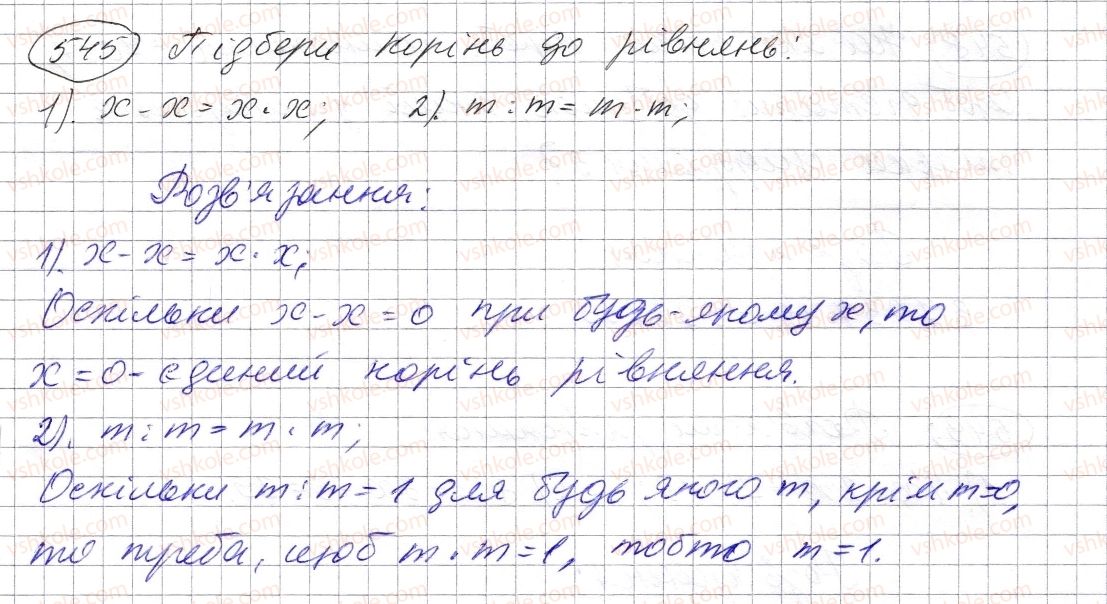 545 Підбери корінь до рівнянь:
1). x - x = x · x; 2). m : m = m · m;
Розв'язання:
1). x - x = x · x;
Оскільки x - x = 0 при будь-якому x, то
x = 0 - єдиний корінь рівняння.
2). m : m = m · m;
Оскільки m : m = 1 для будь якого m, крім m=0,
то треба, щоб m · m = 1, тобто m = 1.